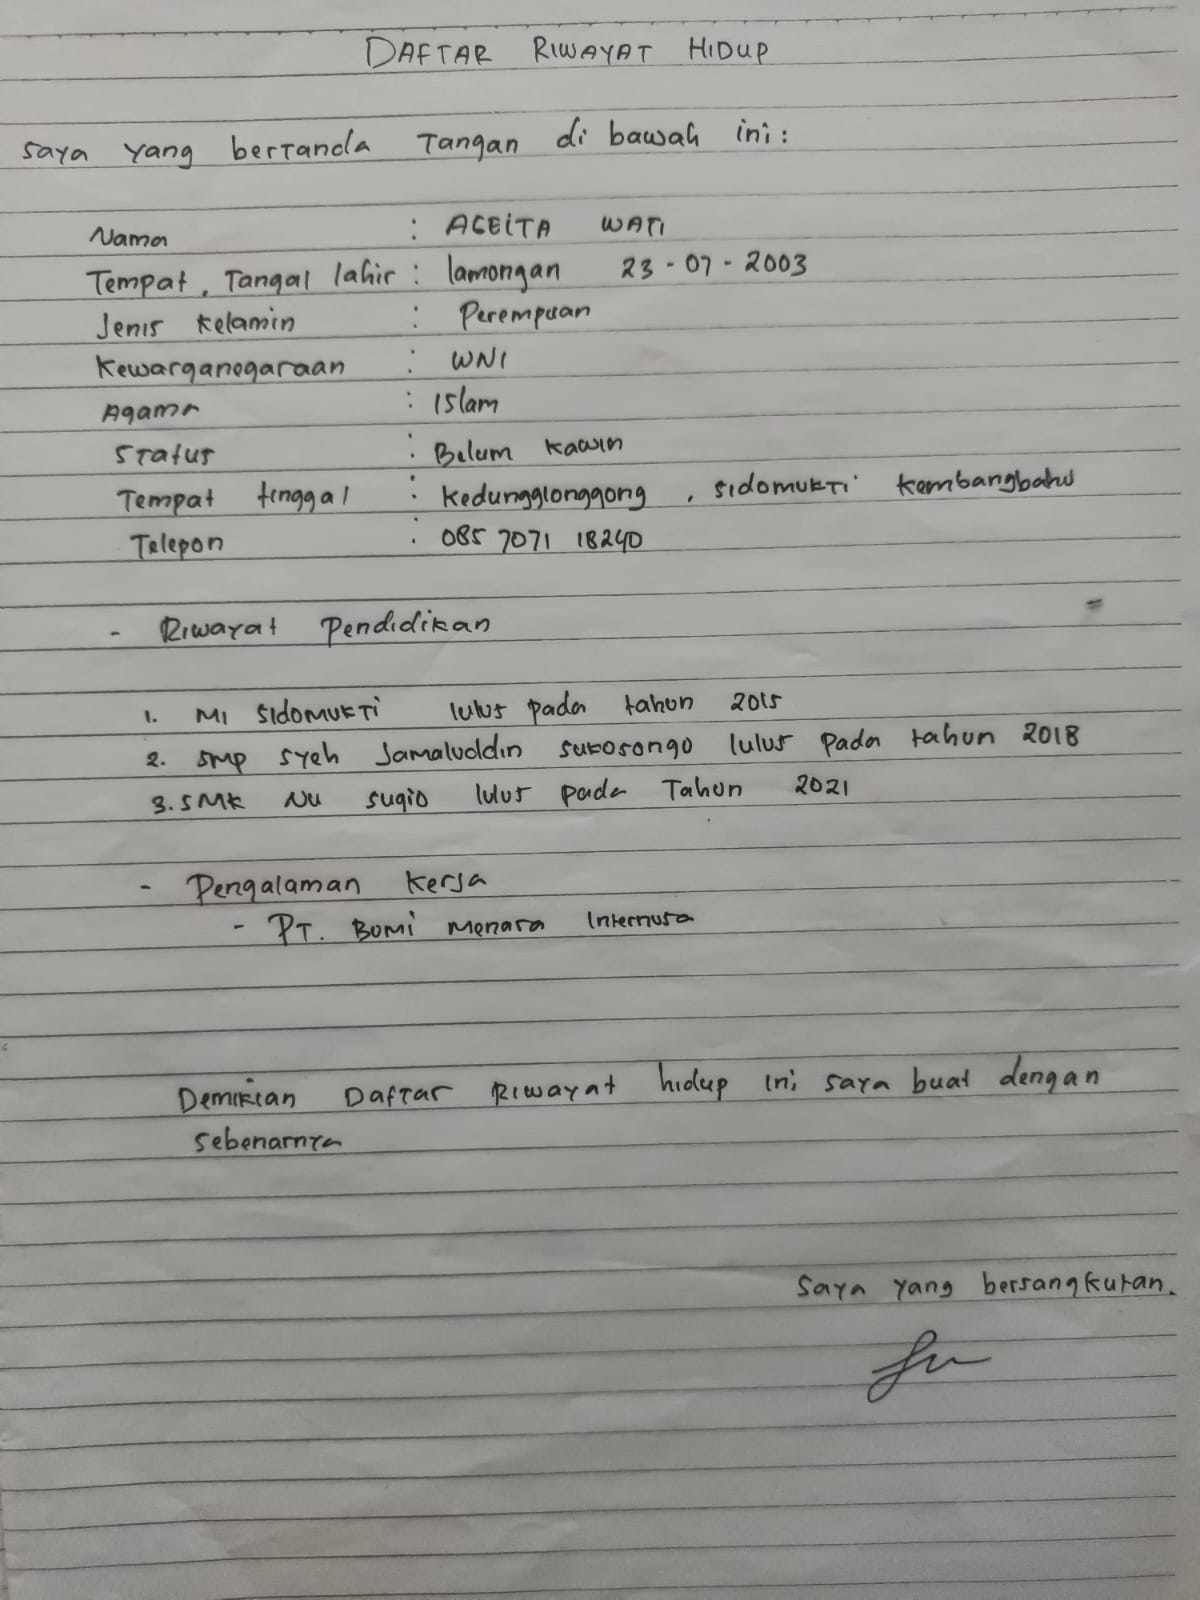 DAFTAR RIWAYAT HIDUP
saya yang bertanda Tangan di bawah ini :
Nama : AGEITA WATI
Tempat, Tangal lahir : lamongan 23 - 07 - 2003
Jenis Kelamin : Perempuan
Kewarganegaraan : WNI
Agama : Islam
Status : Belum Kawin
Tempat tinggal : Kedungglonggong, sidomukti Kembangbahu
Telepon : 085 7071 18240
- Riwayat Pendidikan
1. MI SIDOMUKTi lulus pada tahun 2015
2. SMP syeh Jamaluddin sukosongo lulus pada tahun 2018
3. SMK NU sugio lulus pada Tahun 2021
- Pengalaman Kerja
- PT. BUMi Menara Internusa
Demikian Daftar Riwayat hidup ini saya buat dengan
sebenarnya
Saya yang bersangkutan.